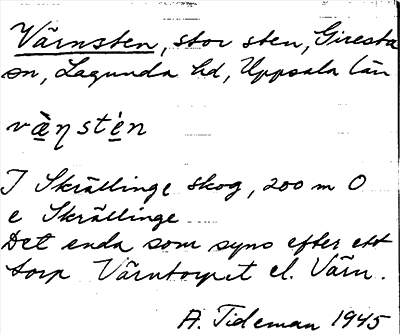 Värnsten, stor sten, Giresta
sn, Lagunda hd, Uppsala län
væ̀ṇsté̠n
I Skrällinge skog, 200 m O
e Skrällinge
Det enda som syns efter ett
torp Värntorpet el. Värn.
A. Tideman 1945